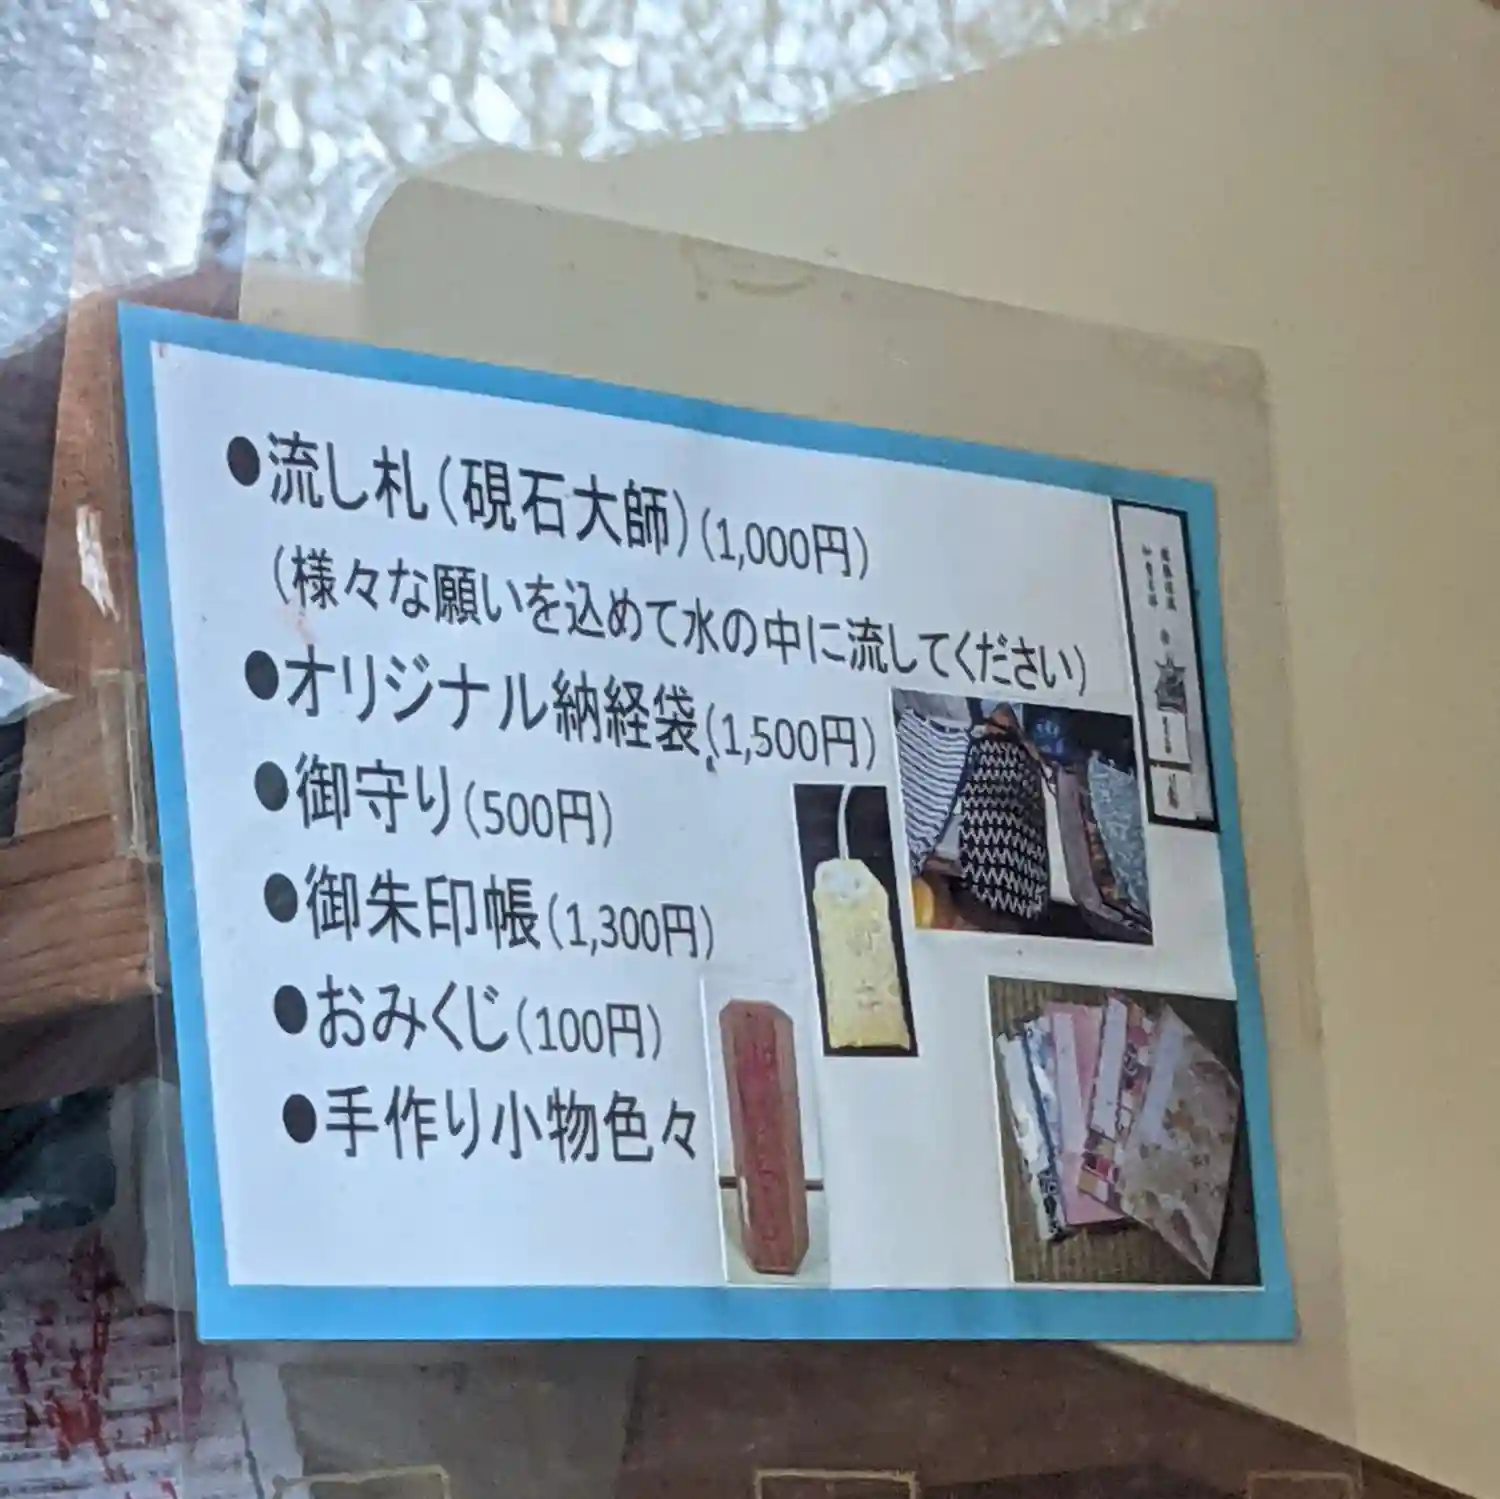 ●流し札(硯石大師)(1,000円)
(様々な願いを込めて水の中に流してください)
●オリジナル納経袋(1,500円)
●御守り(500円)
●御朱印帳(1,300円)
●おみくじ(100円)
●手作り小物色々